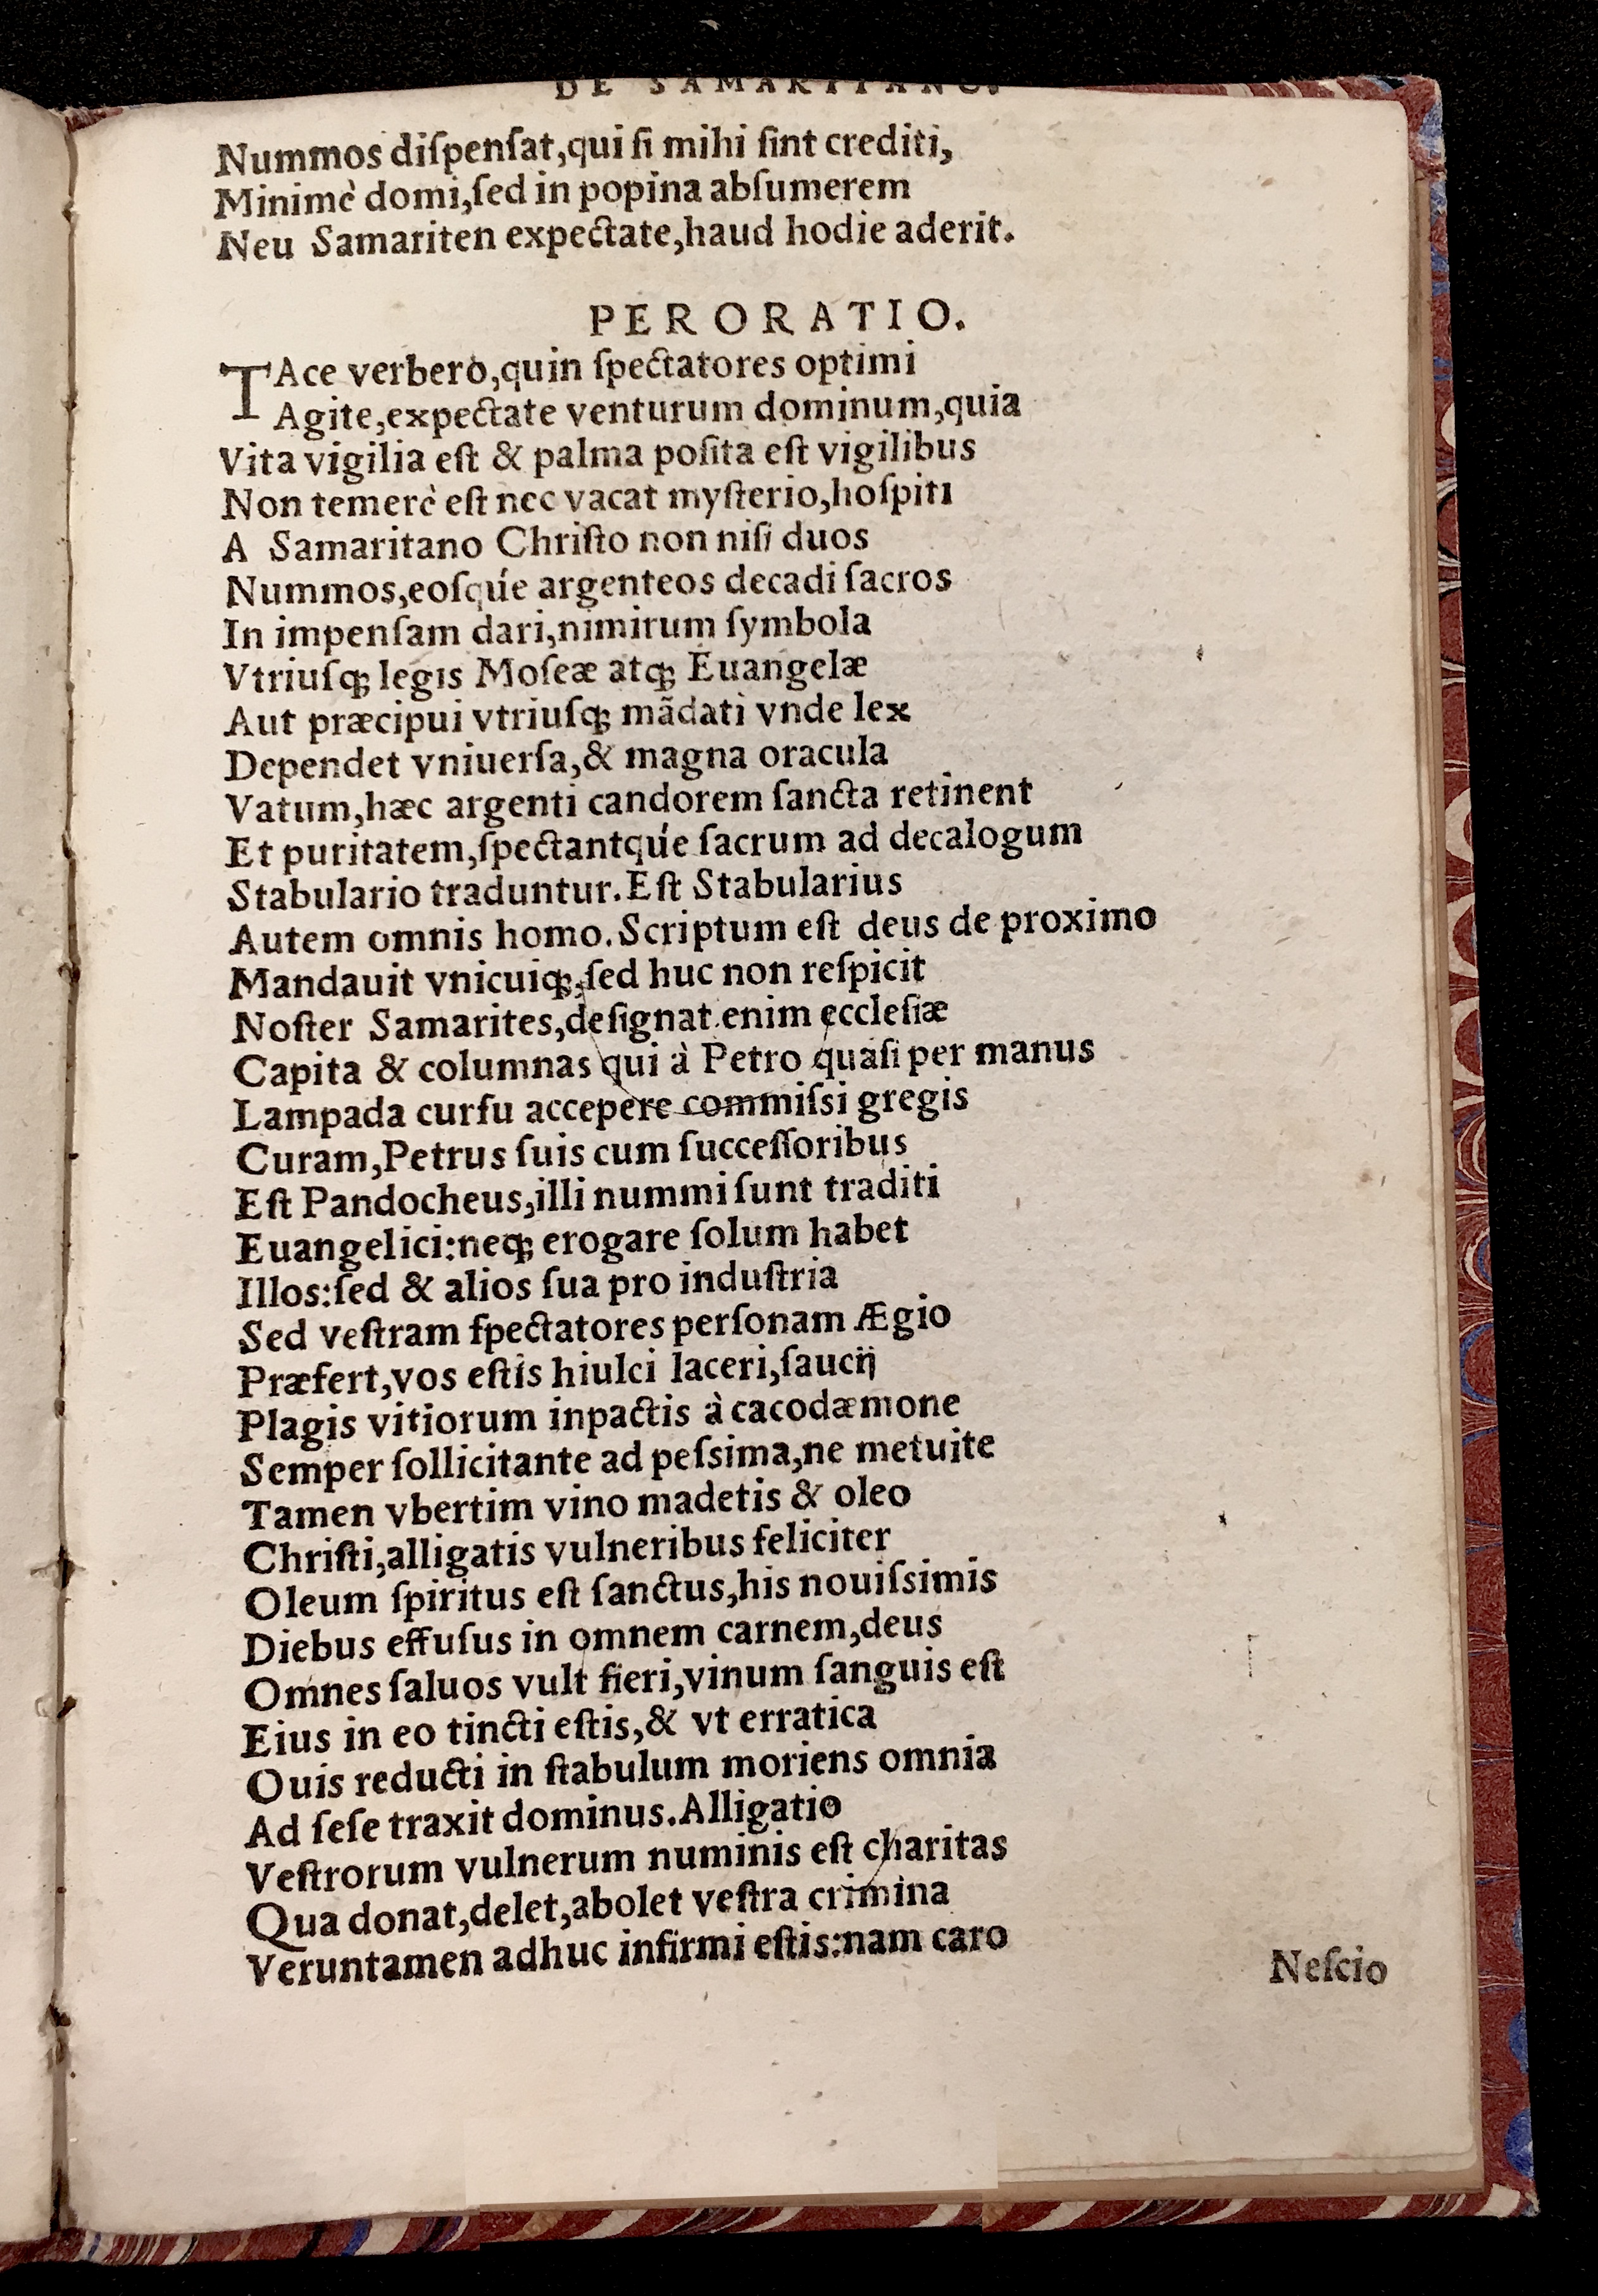 DE SAMARITANO.
Nummos diſpenſat,qui ſi mihi ſint crediti,
Minimè domi,ſed in popina abſumerem
Neu Samariten expectate,haud hodie aderit.
PERORATIO.
TAce verberò,quin ſpectatores optimi
Agite,expectate venturum dominum,quia
Vita vigilia eſt & palma poſita eſt vigilibus
Non temerè eſt nec vacat myſterio,hoſpiti
A Samaritano Chriſto non niſi duos
Nummos,eoſqúe argenteos decadi ſacros
In impenſam dari,nimirum ſymbola
Vtriuſq; legis Moſeæ atq; Euangelæ
Aut præcipui vtriuſq; mãdati vnde lex
Dependet vniuerſa,& magna oracula
Vatum,hæc argenti candorem ſancta retinent
Et puritatem,ſpectantqúe ſacrum ad decalogum
Stabulario traduntur.Eſt Stabularius
Autem omnis homo.Scriptum eſt deus de proximo
Mandauit vnicuiq;,ſed huc non reſpicit
Noſter Samarites,deſignat enim eccleſiæ
Capita & columnas qui à Petro quaſi per manus
Lampada curſu accepere commiſsi gregis
Curam,Petrus ſuis cum ſucceſſoribus
Eſt Pandocheus,illi nummi ſunt traditi
Euangelici:neq; erogare ſolum habet
Illos:ſed & alios ſua pro induſtria
Sed veſtram ſpectatores perſonam Ægio
Præfert,vos eſtis hiulci laceri,ſaucij
Plagis vitiorum inpactis à cacodæmone
Semper ſollicitante ad peſsima,ne metuite
Tamen vbertim vino madetis & oleo
Chriſti,alligatis vulneribus feliciter
Oleum ſpiritus eſt ſanctus,his nouiſsimis
Diebus effuſus in omnem carnem,deus
Omnes ſaluos vult fieri,vinum ſanguis eſt
Eius in eo tincti eſtis,& vt erratica
Ouis reducti in ſtabulum moriens omnia
Ad ſeſe traxit dominus.Alligatio
Veſtrorum vulnerum numinis eſt charitas
Qua donat,delet,abolet veſtra crimina
Veruntamen adhuc infirmi eſtis:nam caro
Neſcio